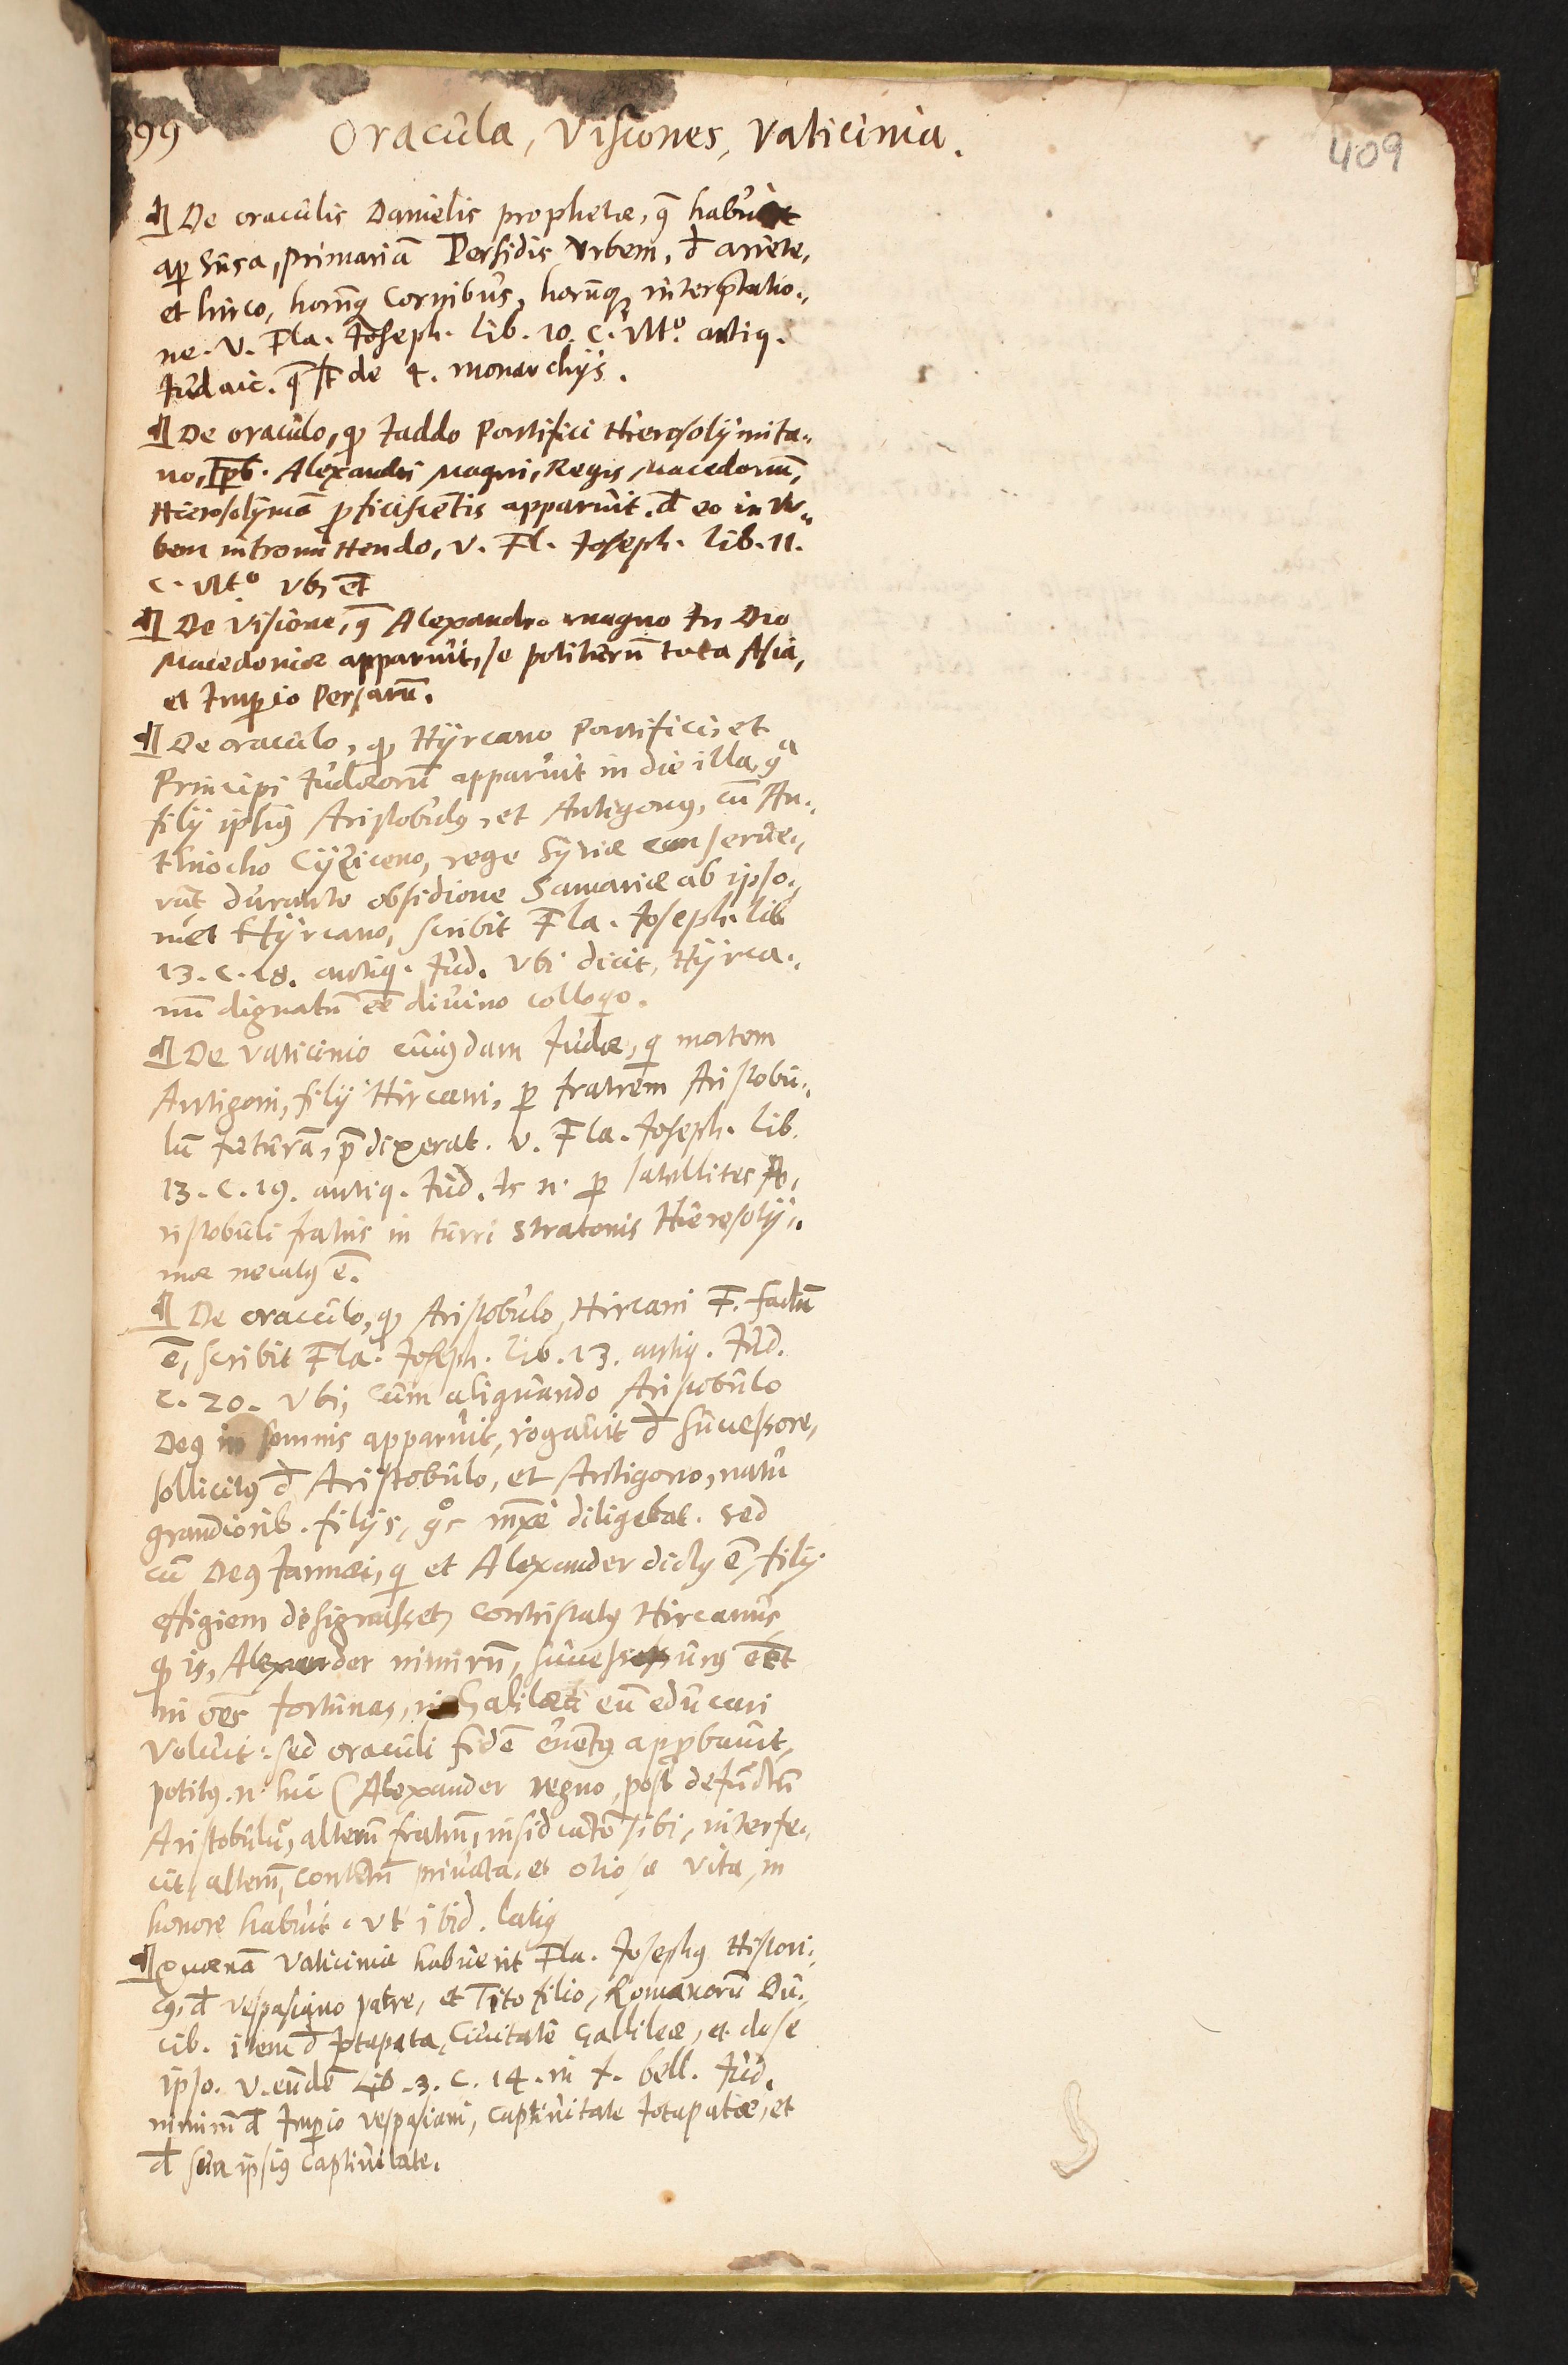 99 Oracula, Visiones, Vaticinia. 409
¶ De oraculis Danielis prophetæ, q̄ habuit
ap̄ Susa, primariā Persidis Vrbem, đ ariete,
et hirco, horūq̨ Cornibus, horūq̨ interp̄tatio„
ne. V. Fla. Joseph. lib. 10. c. Vlt.º antiq.
Judaic. q̄ s̄t de 4. monarchijs.
¶ De oraculo, qđ Jaddo Pontifici Hierosolymita„
no, Tp̄b. Alexandri Magni, Regis Macedonū,
Hierosolymā ꝓficiscētis apparuit. đ eo in Vr„
bem intromittendo, V. Fl. Joseph. lib. 11.
c. Vlt.º Vbi et̄
¶ De Visione, q̄ Alexandro magno In Dio
Macedoniæ apparuit, se politurū tota Asia,
et Imꝑio Persarū.
¶ De oraculo, qđ Hyrcano Pontifici, et
Principi Judæorū apparuit in die illa, qª
filij ipsiꝰ Aristobulꝰ, et Antigonꝰ, cū An„
thiocho Cyziceno, rege Syriæ conserue„
rāt durante obsidione Samariæ ab ipso„
met Hyrcano, scribit Fla. Joseph. lib
13. c. 18. antiq. Jud. Vbi dicit, Hyrca„
nū dignatū ēe diuino colloqio.
¶ De Vaticinio cuiꝰdam Judæ, qi mortem
Antigoni, filij Hircani, ꝑ fratrem Aristobu„
lū futurā, p̄dixerat. V. Fla. Joseph. lib.
13. c. 19. antiq. Jud. Is n. ꝑ satellites A„
ristobuli fratris in turri Stratonis Hierosoly„
mæ necatꝰ ē.
¶ De oraculo, qđ Aristobulo, Hircani F. factū
ē, scribit Fla. Joseph. lib. 13. antiq. Jud.
c. 20. Vbi, Cum aliquando Aristobulo
Deꝰ in somnis apparuit, rogauit đ successore,
sollicitꝰ đ Aristobulo, et Antigono, natu
grandiorib. filijs, qºs mx̄e diligebat. sed
cū Deꝰ Jannæi, qi et Alexander dictꝰ ē, filij
effigiem designasset, contristatꝰ Hircanus,
qđ is, Alexander nimirū, successurꝰ eēt
in oēs fortunas, in Galilæa eū educari
Voluit: sed oraculi fidē euētꝰ apꝓbauit,
potitꝰ. n. hic (Alexander regno, post defūctū
Aristobulū, alterū fratrū, insidiātē sibi, interfe„
cit, alterū, contētū priuata, et otiosa vita, in
honore habuit. vt ibid. latiꝰ
¶ Quænā Vaticinia habuerit Fla. Josephꝰ Histori„
cꝰ, đ Vespasiano patre, et Tito filio, Romanorū Du„
cib. item đ Jotapata, Ciuitate Gallileæ, et de se
ipso. V. eūdē Lib. 3. c. 14. in t. bell. Jud.
nimirū đ Imꝑio Vespasiani, captiuitate Jotapatæ, et
đ sua ipsiꝰ captiuitate.